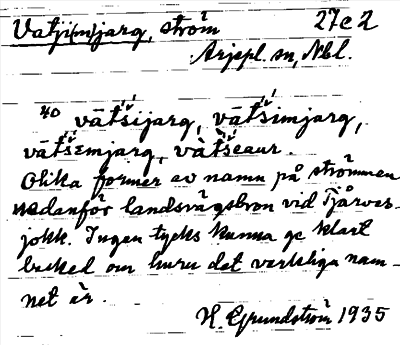 Vatji(m)jarg, ström 27e2
Arjepl. sn, Nbl.
40 vātšijarg, vātšimjarg,
vātšεmjarg, vàtšεaur.
Olika former av namn på strömmen
nedanför landsvägsbron vid Tjårves-
jokk. Ingen tycks kunna ge klart
besked om huru det verkliga nam-
net är.
H. Grundström 1935